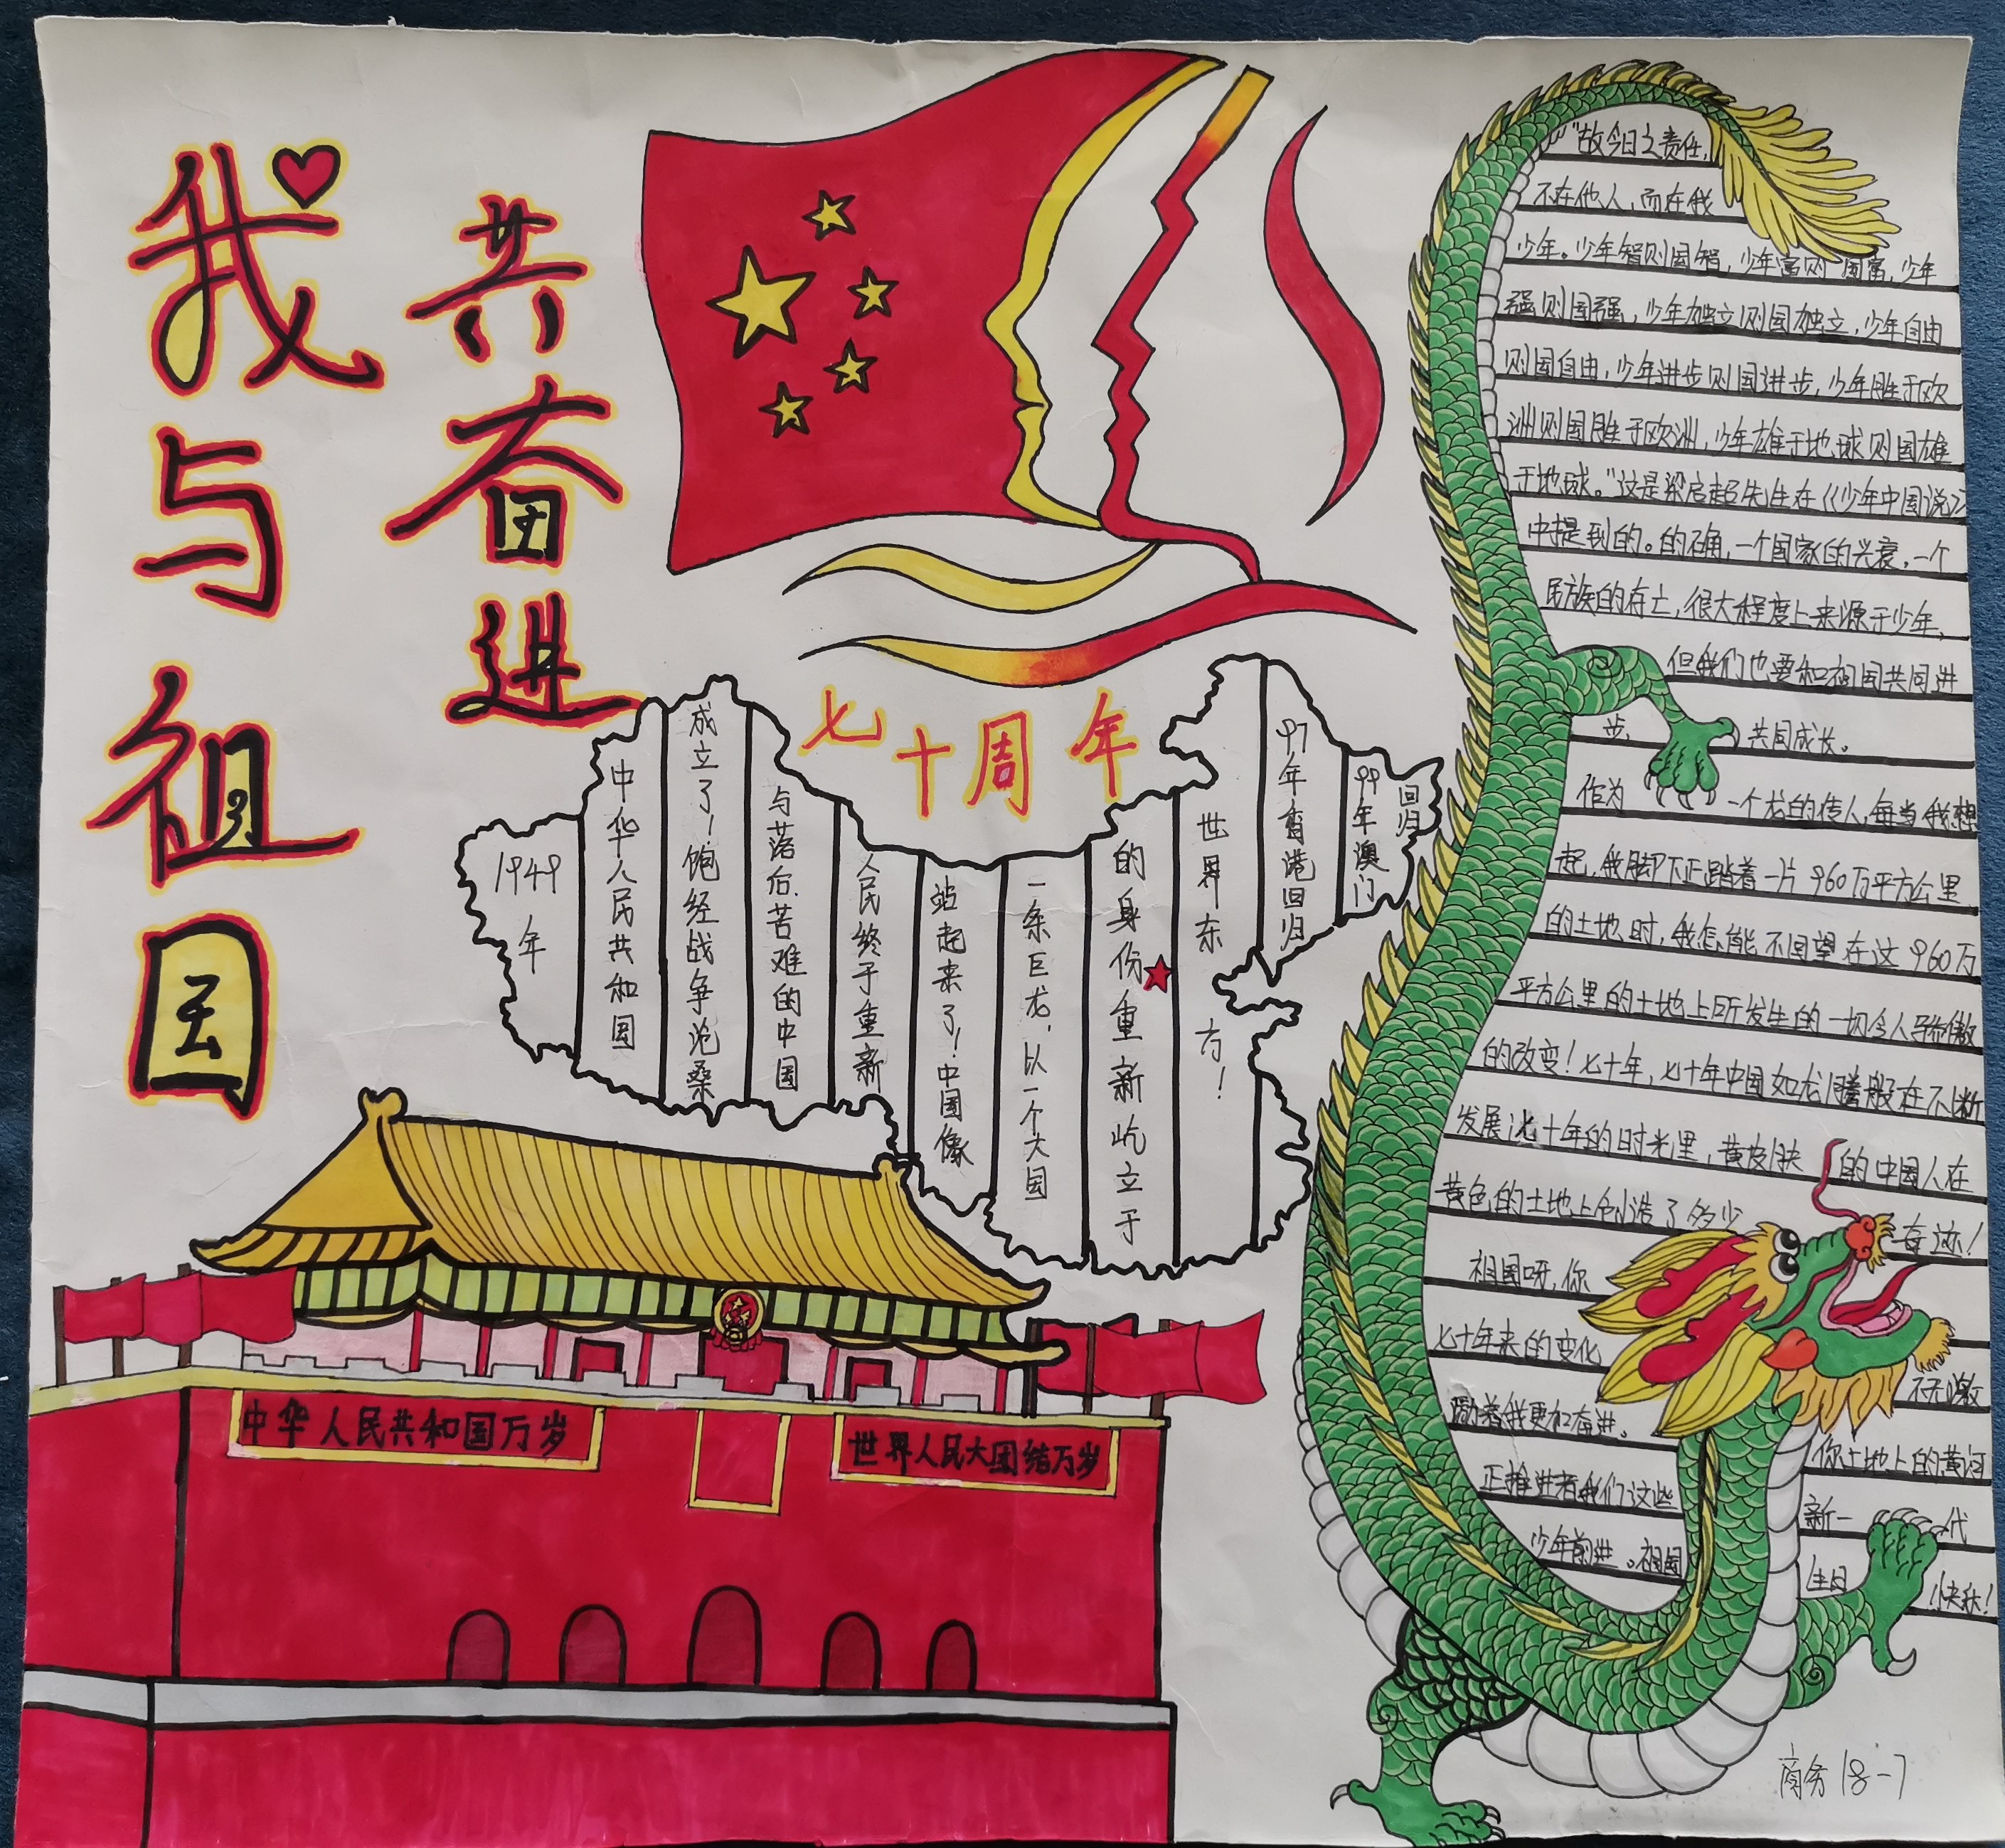 我与祖国
共奋进
七十周年
1949年
中华人民共和国
成立了！饱经战争沧桑
与落后苦难的中国
人民终于重新
站起来了！中国像
一条巨龙，以一个大国
的身份重新屹立于
世界东方！
97年香港回归
99年澳门
回归
中华人民共和国万岁
世界人民大团结万岁
"故今日之责任，
不在他人，而在我
少年。少年智则国智，少年富则国富，少年
强则国强，少年独立则国独立，少年自由
则国自由，少年进步则国进步，少年胜于欧
洲则国胜于欧洲，少年雄于地球则国雄
于地球。"这是梁启超先生在《少年中国说》
中提到的。的确，一个国家的兴衰，一个
民族的存亡，很大程度上来源于少年，
但我们也要和祖国共同进
步，共同成长。
作为一个龙的传人，每当我想
起，我脚下正踏着一片960万平方公里
的土地时，我怎能不回望在这960万
平方公里的土地上所发生的一切令人骄傲
的改变！七十年，七十年中国如龙腾般在不断
发展 七十年的时光里，黄皮肤的中国人在
黄色的土地上创造了多少奇迹！
祖国呀，你
七十年来的变化 不无激
励着我更加奋进。 你土地上的黄河
正推进着我们这些新一代
少年前进。祖国生日快乐！
商务18-7